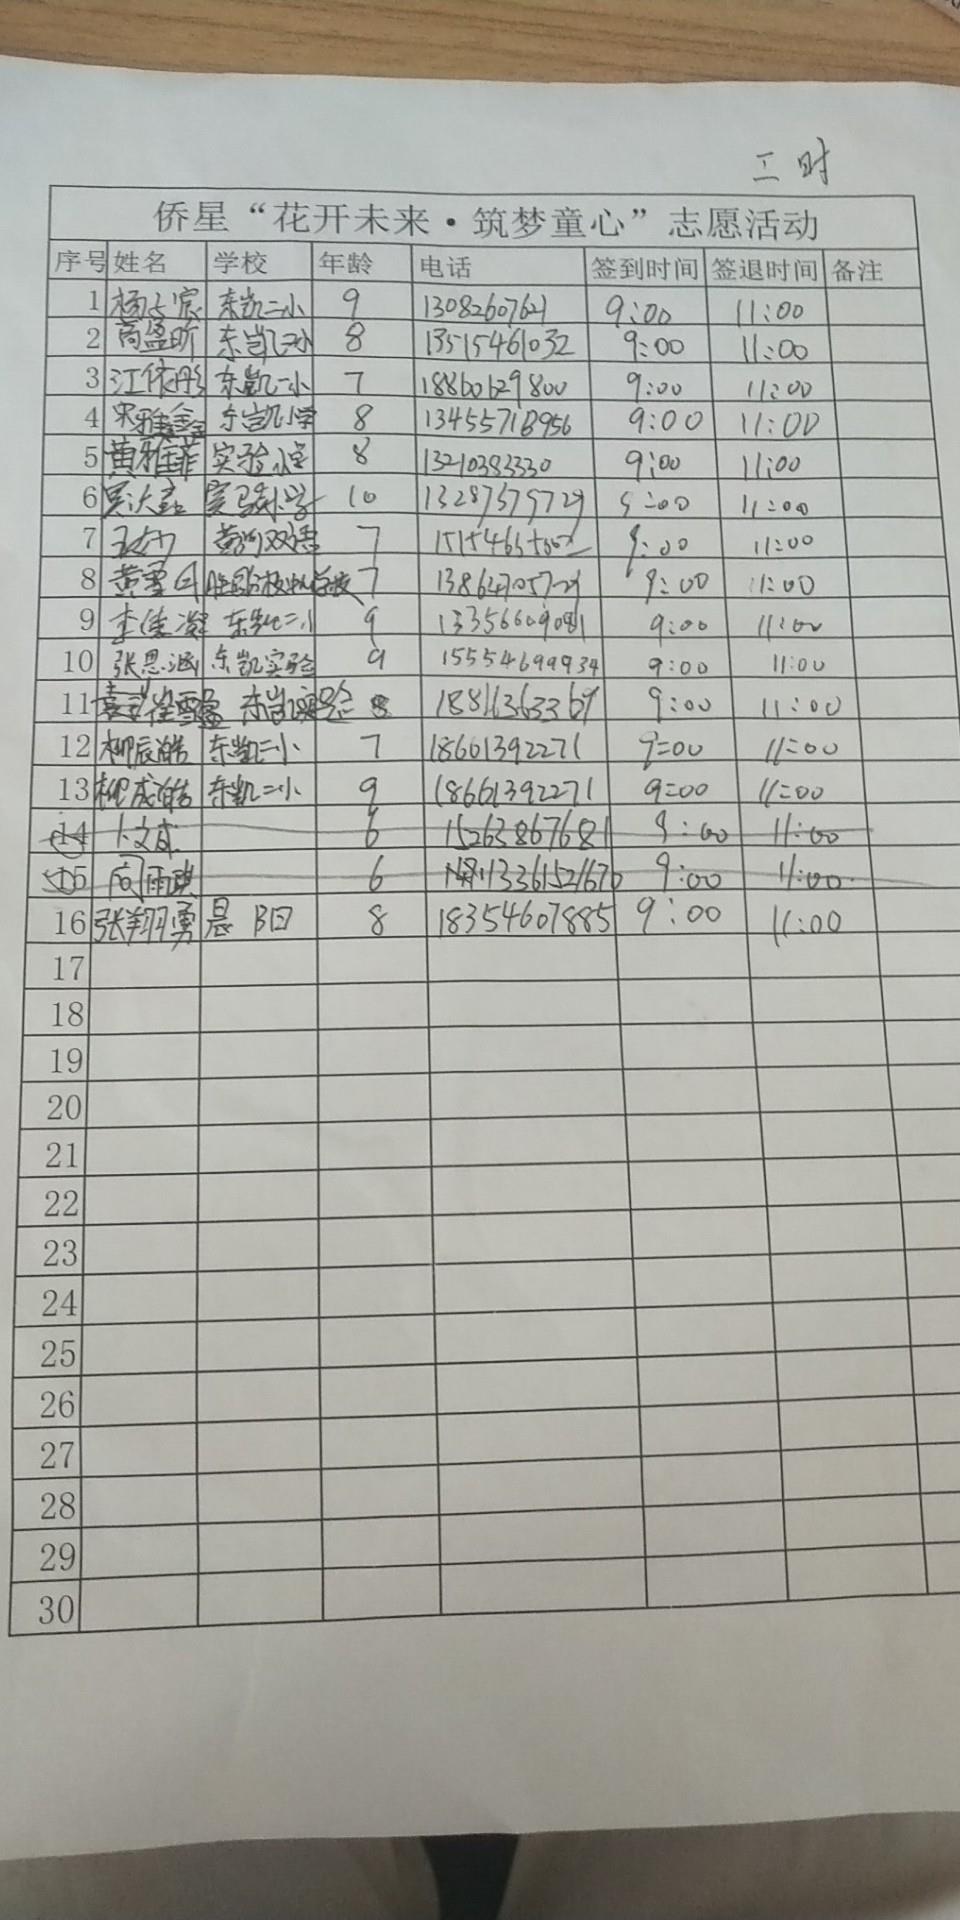 工时
侨星“花开未来·筑梦童心”志愿活动
序号 姓名 学校 年龄 电话 签到时间 签退时间 备注
1 东凯二小 9 13082607621 9:00 11:00
2 8 13515461032 9:00 11:00
3 江依彤 东凯二小 7 18860629800 9:00 11:00
4 东凯小学 8 9:00 11:00
5 黄雅菲 8 13210383330 9:00 11:00
6 10 13287375729 9:00 11:00
7 7 9:00 11:00
8 7 9:00 11:00
9 李佳凝 东凯二小 9 13356609081 9:00 11:00
10 张思涵 东凯实验 9 15554699934 9:00 11:00
11 8 9:00 11:00
12 柳辰皓 东凯二小 7 18661392271 9:00 11:00
13 柳成皓 东凯二小 9 18661392271 9:00 11:00
14 卜文成 6 15263867681 9:00 11:00
15 6 9:00 11:00
16 张翔勇 晨阳 8 18354607885 9:00 11:00
17
18
19
20
21
22
23
24
25
26
27
28
29
30